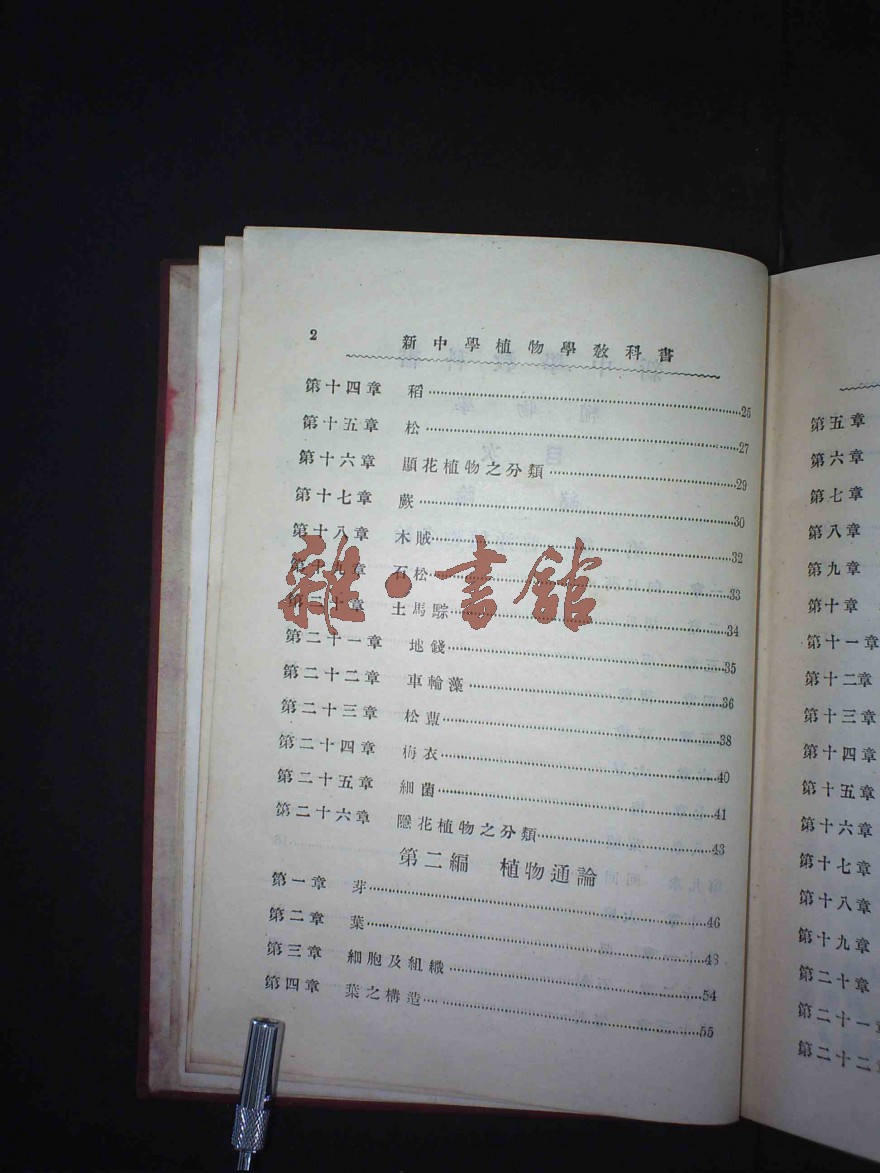 2
新中學植物學教科書
第十四章 稻 25
第十五章 松 27
第十六章 顯花植物之分類 29
第十七章 蕨 30
第十八章 木賊 32
第十九章 石松 33
第二十章 土馬騌 34
第二十一章 地錢 35
第二十二章 車輪藻 36
第二十三章 松蕈 38
第二十四章 梅衣 40
第二十五章 細菌 41
第二十六章 隱花植物之分類 43
第二編 植物通論
第一章 芽 46
第二章 葉 48
第三章 細胞及組織 54
第四章 葉之構造 55
雜·書館
第五章
第六章
第七章
第八章
第九章
第十章
第十一章
第十二章
第十三章
第十四章
第十五章
第十六章
第十七章
第十八章
第十九章
第二十章
第二十一
第二十二